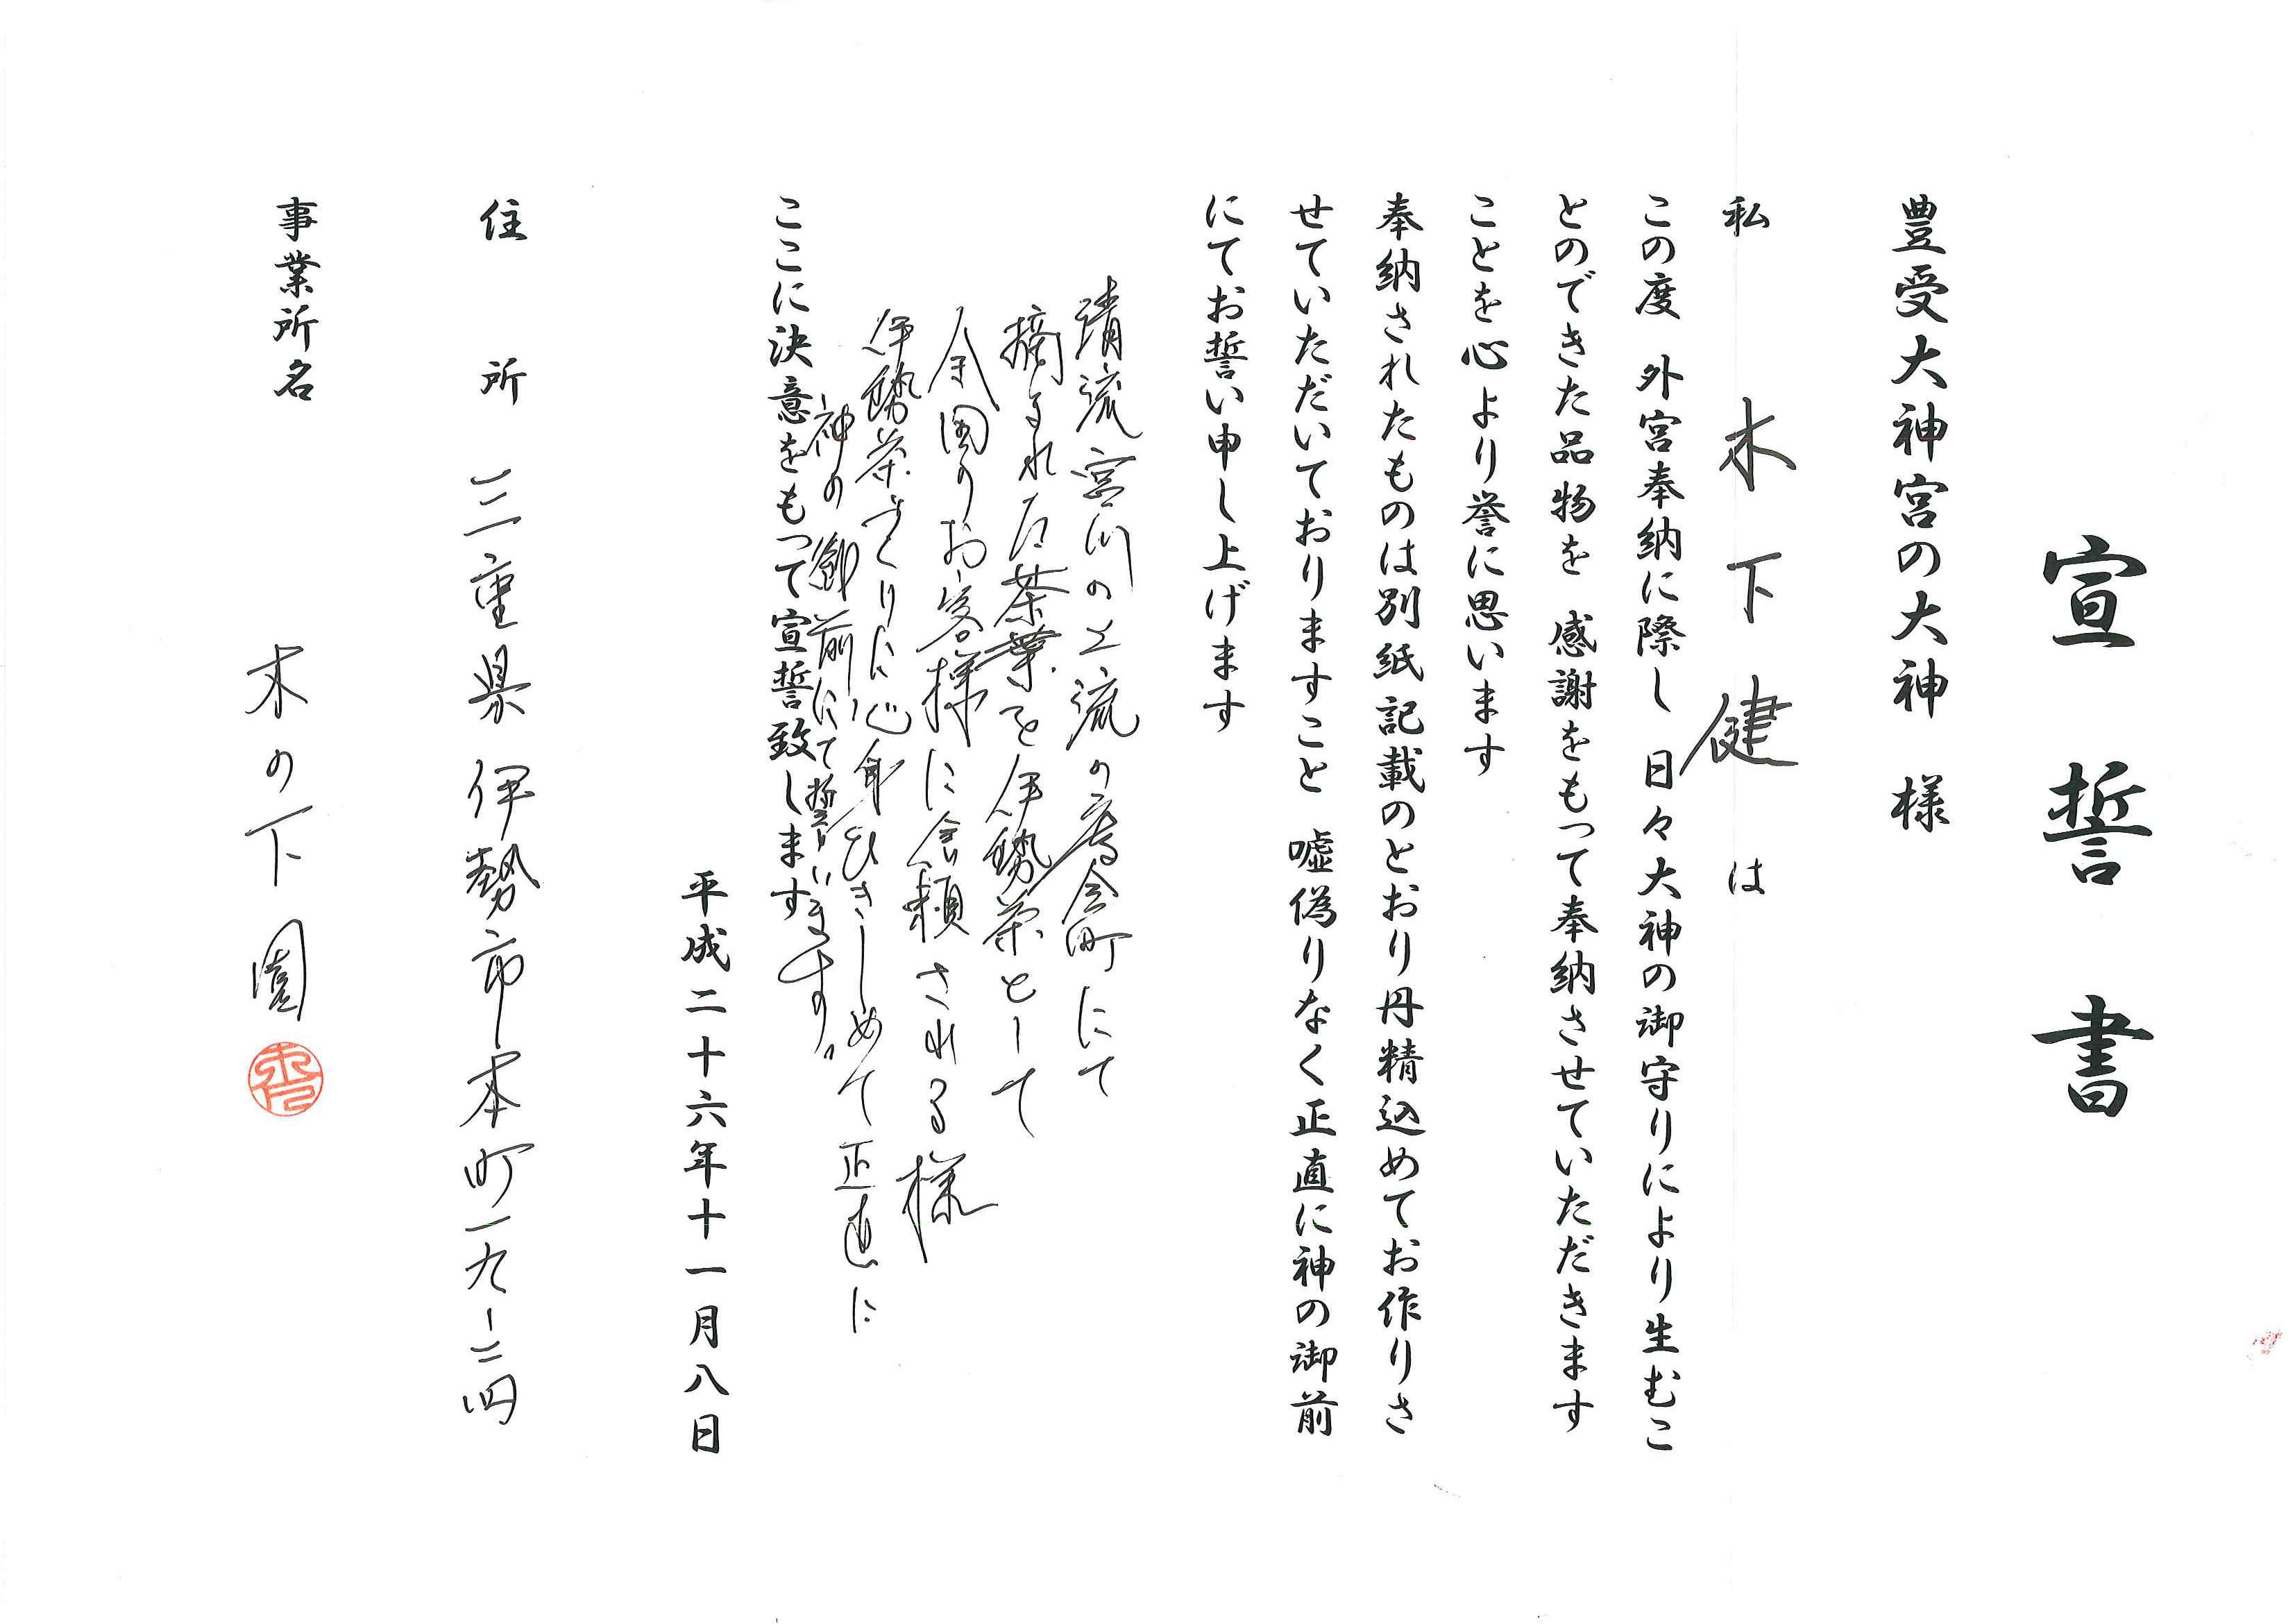 宣誓書
豊受大神宮の大神 様
私 木下健 は
この度 外宮奉納に際し 日々大神の御守りにより生むこ
とのできた品物を 感謝をもって奉納させていただきます
ことを心より誉に思います
奉納されたものは別紙記載のとおり丹精込めてお作りさ
せていただいておりますこと 嘘偽りなく正直に神の御前
にてお誓い申し上げます
清流宮川の上流の度会町にて
摘まれた茶葉を伊勢茶として
全国のお客様に信頼される様
伊勢茶づくりに心身ひきしめて正直に
神の御前にて誓います。
ここに決意をもって宣誓致します
平成二十六年十一月八日
住所 三重県伊勢市本町一九-二四
事業所名 木の下園